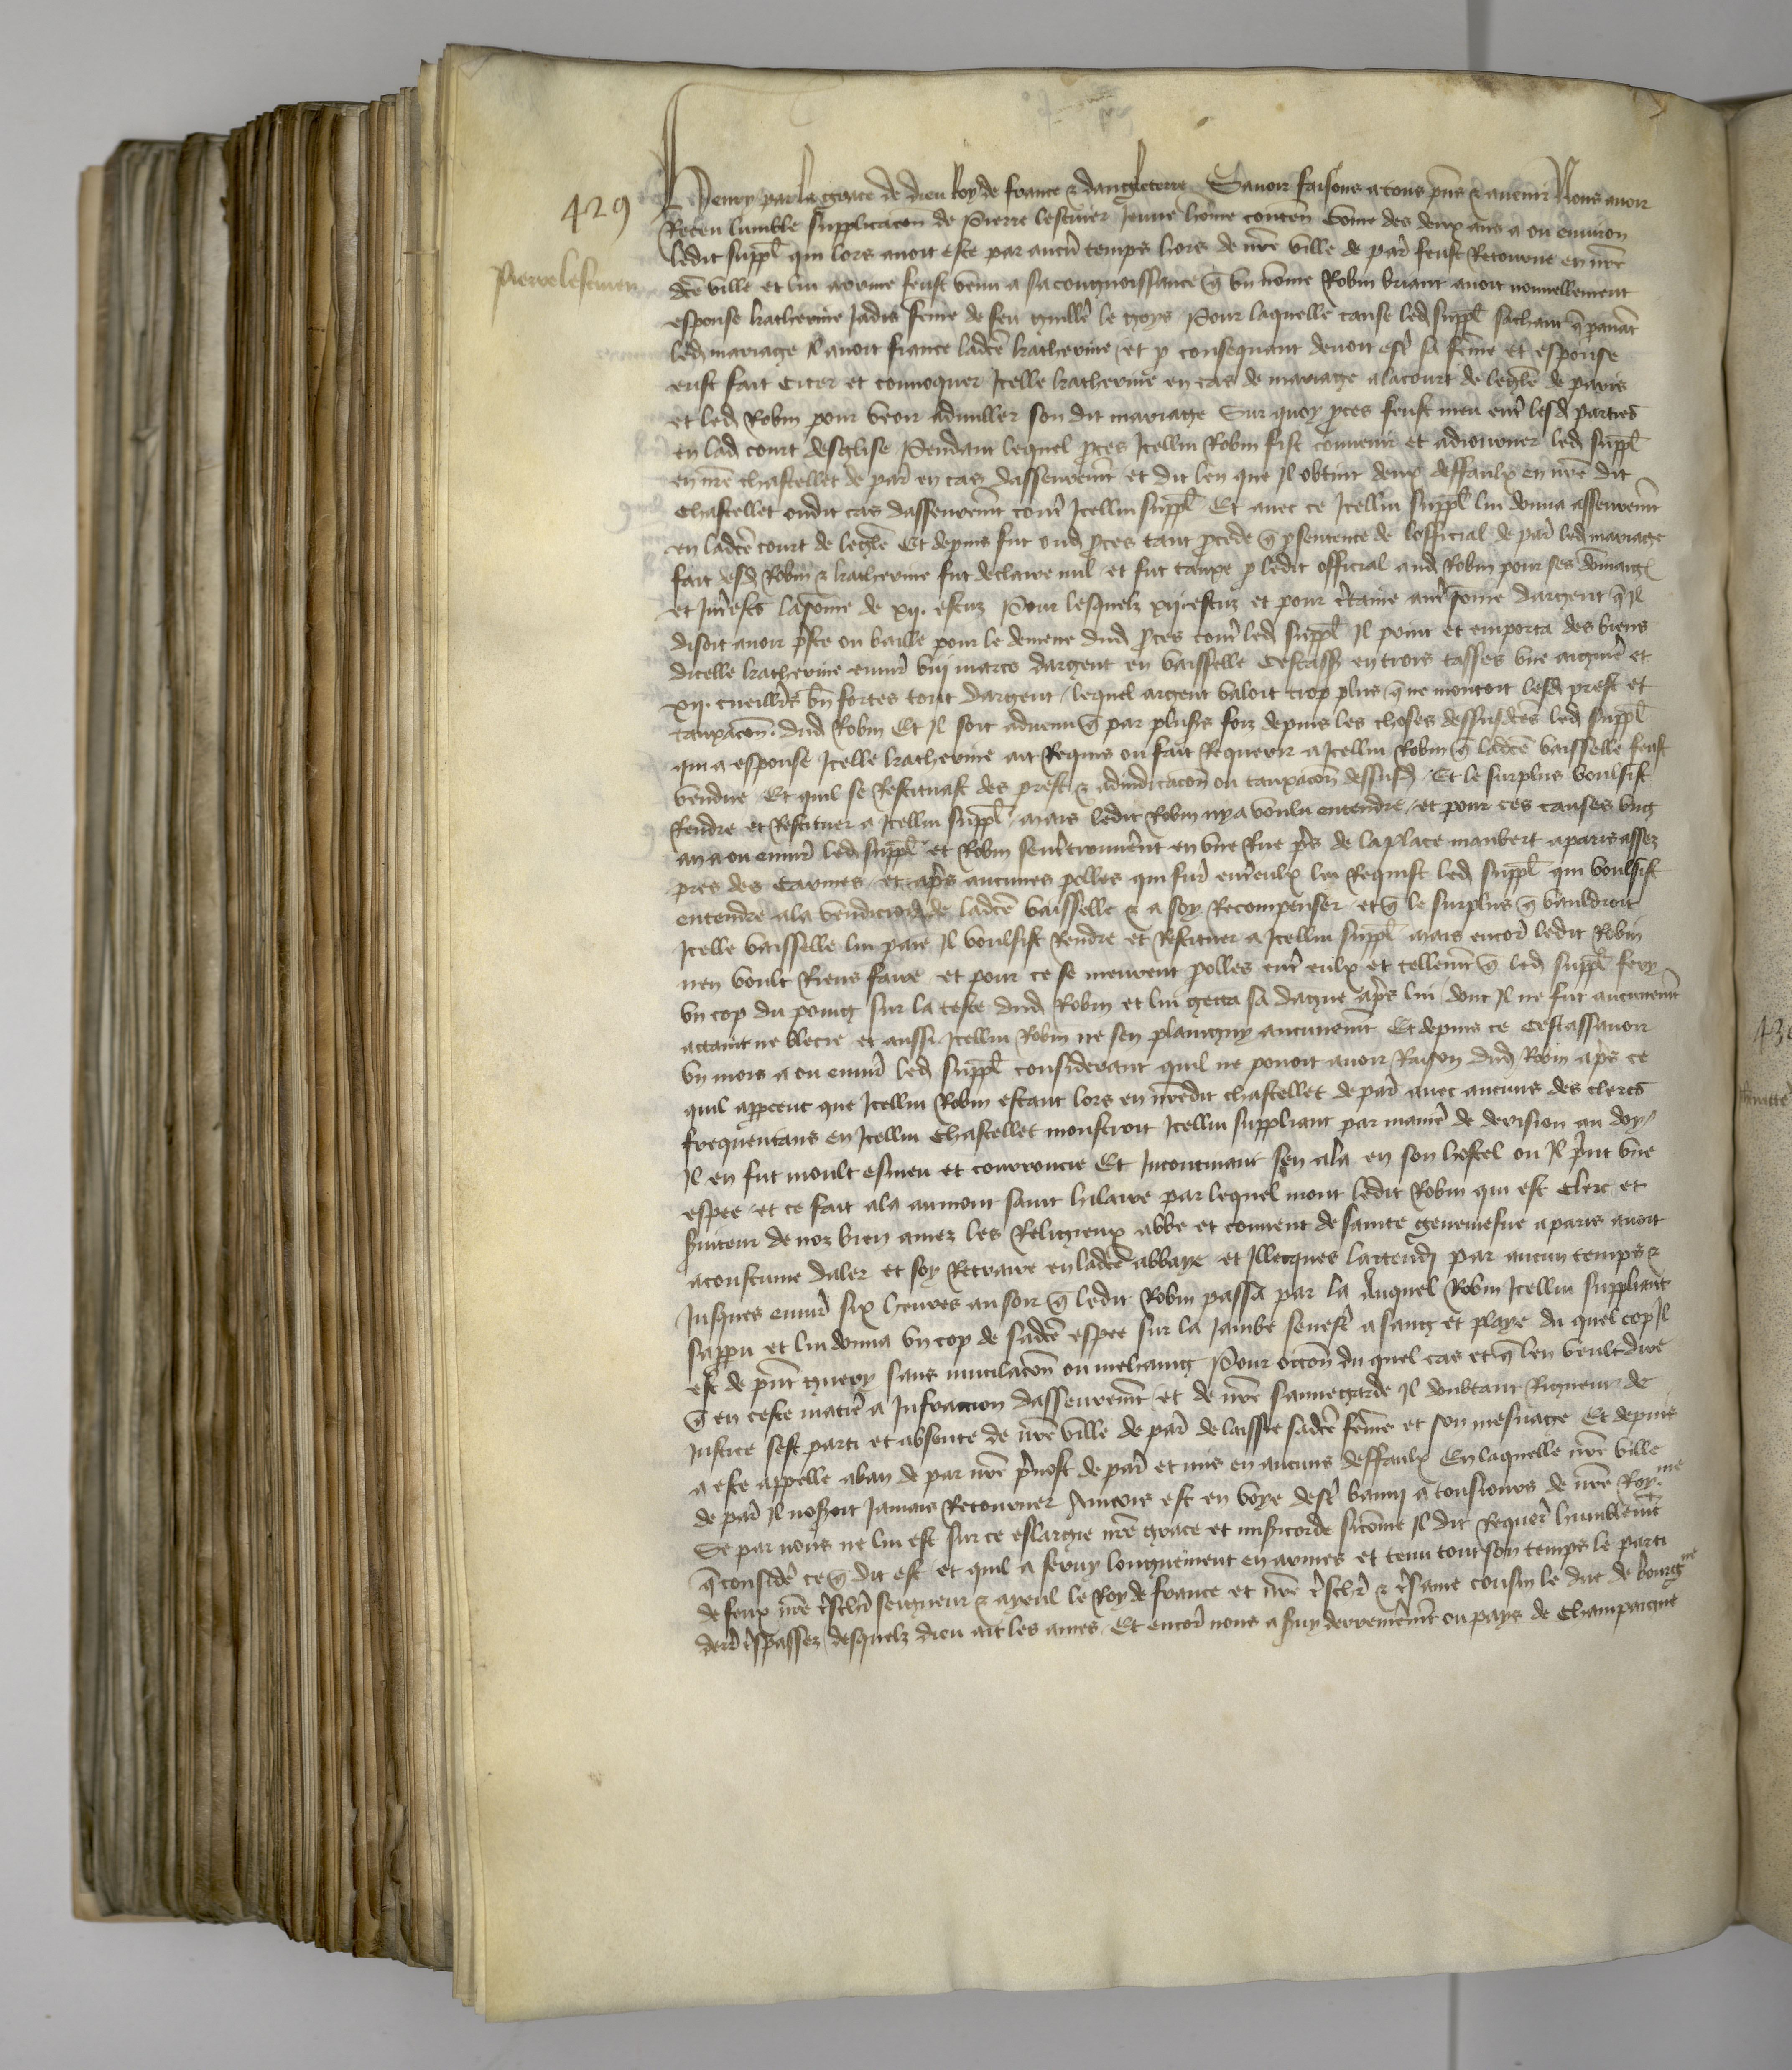 429
Pierre lescuier
Henry par la grace de dieu Roy de france & dangleterre Sauoir faisons a tous p̄ns & auenir Nous auoir
Receu lumble supplicacōn de Pierre lescuier Jeune hōme contēn Cōme des deux ans a ou enuiron
ledit suppl̄ qui lors auoit este par aucū temps hors de nr̄e ville de par̄ feust Retourne en nr̄e
dc̄e ville et lui feust venu a sa congnoissance q̄ vn nōme Robin briant auoit nouuellement
espouse katherine Jadis fēme de feu guille le goys Pour laquelle cause led suppl̄ sachant q̄ pauāt
led mariage Il auoit fiance ladc̄e katherine et p consequant deuoit est̄ sa fēme et espouse
eust fait Citer et conuoquer Icelle katherine en cas de mariage a la court de legl̄e de paris
et led Robin pour veoir adnuller son dit mariage Sur quoy pces feust meu ent̄ lesd parties
en lad court desglise Pendant lequel pces Icellui Robin fist conuenir et adiourner led suppl̄
en nr̄e chastellet de par̄ en cas dasseurem̄t et dit len que Il obtint deux deffaulx en nr̄e dit
Chastellet oudit cas dasseurem̄t cont̄ Icellui suppl̄ Et auec ce Icellui suppl̄ lui donna asseurem̄t
en ladc̄e court de legl̄e Et depuis fut oud pces tant pcede q̄ p sentence de lofficial de par̄ led mariage
fait desd Robin & katherine fut declaire nul et fut tauxe p ledit official aud Robin pour ses dōmaig
et Int̄ests la sōme de xij. escuz Pour lesquelz xij escuz et pour c̄taine aut̄ sōme dargent q̄ Il
disoit auoir p̄ste ou baille pour le demene dud pces cont̄ led suppl̄ Il print et emporta des biens
dicelle katherine enuir̄ viij marcs dargent en vaisselle Cestass en trois tasses vne aiguie et
xij. cueillr̄s bn̄ fortes tout dargent lequel argent valoit trop plus q̄ ne montoit lesd prest et
tauxacōn dud Robin Et Il soit aduenu q̄ par plus̄s foiz depuis les choses dessusdc̄es led suppl̄
qui a espouse Icelle katherine ait Requis ou fait Requerir a Icellui Robin q̄ ladc̄e vaisselle feust
vendue Et quil se Restituast des prest & adiudicacōn ou tauxacōn dessusd Et le surplus voulsist
Rendre et Restituer a Icellui suppl̄ mais ledit Robin ny a voulu entendre et pour ces causes vng
an a ou enuir̄ led suppl̄ et Robin sent̄trouuer̄nt en vne Rue p̄s de la place maubert a paris assez
pres des Carmes et ap̄s aucunes polles qui fur̄ ent̄ eulx lui Requist led suppl̄ qui voulsist
entendre a la vendicion de ladc̄e vaisselle & a soy Recompenser et q̄ le surplus q̄ vauldroit
Icelle vaisselle lui paie Il voulsist Rendre et Restituer a Icellui suppl̄ mais encor̄ ledit Robin
nen voult Riens faire et pour ce se meurent polles ent̄ eulx et tellem̄t q̄ led suppl̄ fery
vn cop du poing sur la teste dud Robin et lui getta sa dague ap̄s lui dont Il ne fut aucunem̄t
attaint ne blecie et aussi Icellui Robin ne sen plaingny aucunem̄t Et depuis ce Cestassauoir
vn mois a ou enuir̄ led suppl̄ considerant quil ne pouoit auoir Raison dud Robin ap̄s ce
quil apperceut que Icellui Robin estant lors en nr̄edit chastellet de par̄ auec aucuns des clercs
frequentans en Icellui Chastellet monstroit Icellui suppliant par manie de derision au doy
Il en fut moult esmeu et courroucie Et Incontinant sen ala en son hostel ou Il p̄nt vne
espee et ce fait ala au mont saint hilaire par lequel mont ledit Robin qui est Clerc et
s̄uiteur de noz bien amez les Religieux abbe et conuent de sainte geneuiefue a paris auoit
acoustume daler et soy Retraire en ladc̄e abbaye et Illecques lattendj par aucun temps &
Jusques enuir̄ six heures au soir q̄ ledit Robin passa par la Auquel Robin Icellui suppliant
sapparu et lui donna vn cop de sadc̄e espee sur la Jambe senest̄ a sang et playe du quel cop Il
est de p̄nt guery sans mutilacōn ou mehaing Pour occōn du quel cas et q̄ len veult dire
q̄ en ceste matie a Infraction dasseurem̄t et de nr̄e sauuegarde Il doubtant Rigueur de
Justice sest parti et absente de nr̄e ville de par̄ delaissie sadc̄e fēme et son mesnage Et depuis
a este appelle a ban de par nr̄e p̄uost de par̄ et mis en aucuns deffaulx En laquelle nr̄e ville
de par̄ Il noseroit Jamais Retourner Aincois est en voye dest̄ banny a tousiours de nr̄e Roy.me
Se par nous ne lui est sur ce eslargie nr̄e grace et mis̄icorde sicōme Il dit Requer̄ humblem̄t
q̄ conside ce q̄ dit est et quil a seruy longuement en armes et tenu tout son temps le parti
de feux nr̄e t̄schr̄ seigneur & ayeul le Roy de france et nr̄e t̄schr̄ & t̄same cousin le duc de bourgne
derr̄ t̄spassez desquelz dieu ait les ames Et encor̄ nous a s̄uy derreniem̄t ou pays de Champaigne